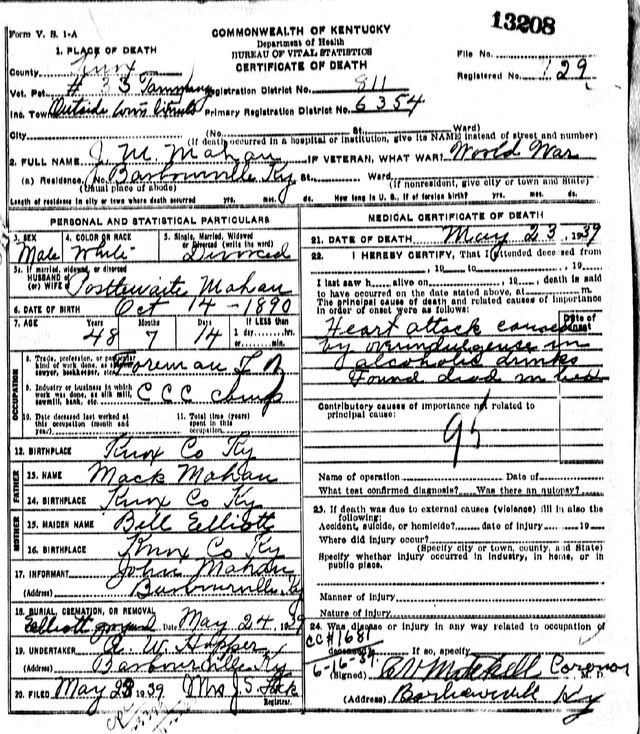 13208
Form V. S. 1-A
COMMONWEALTH OF KENTUCKY
Department of Health
BUREAU OF VITAL STATISTICS
CERTIFICATE OF DEATH
1. PLACE OF DEATH
County Knox
File No.
Registered No. 129
Vot. Pct. # 33 Registration District No. 811
Inc. Town Outside town limits Primary Registration District No. 6354
City (No. St. Ward)
(If death occurred in a hospital or institution, give its NAME instead of street and number)
2. FULL NAME J. M. Mahan IF VETERAN, WHAT WAR? World War
(a) Residence, No. Barbourville Ky St. Ward
(Usual place of abode) (If nonresident, give city or town and State)
Length of residence in city or town where death occurred yrs. mos. ds. How long in U. S., if of foreign birth? yrs. mos. ds.
PERSONAL AND STATISTICAL PARTICULARS
3. SEX 4. COLOR OR RACE 5. Single, Married, Widowed or Divorced (write the word)
Male White Divorced
5a. If married, widowed, or divorced
HUSBAND of
(or) WIFE Postlewaite Mahan
6. DATE OF BIRTH Oct 14 - 1890
7. AGE Years Months Days If LESS than
48 7 14 1 day hrs.
or min.
OCCUPATION
8. Trade, profession, or particular
kind of work done, as
sawyer, bookkeeper, etc. Foreman
9. Industry or business in which
work was done, as silk mill,
sawmill, bank, etc. C C C camp
10. Date deceased last worked at
this occupation (month and
year)
11. Total time (years)
spent in this
occupation
12. BIRTHPLACE Knox Co Ky
FATHER
13. NAME Mack Mahan
14. BIRTHPLACE Knox Co Ky
MOTHER
15. MAIDEN NAME Bell Elliott
16. BIRTHPLACE Knox Co Ky
17. INFORMANT John Mahan
(Address) Barbourville, Ky
18. BURIAL, CREMATION, OR REMOVAL
Elliott graveyard Date May 24, 1939
19. UNDERTAKER A. W. Hopper
(Address) Barbourville Ky
20. FILED May 28 1939 Mrs J. S.
Registrar.
MEDICAL CERTIFICATE OF DEATH
21. DATE OF DEATH May 23, 1939
22. I HEREBY CERTIFY, That I attended deceased from
, 19 to , 19
I last saw h alive on , 19 , death is said
to have occurred on the date stated above, at m.
The principal cause of death and related causes of importance
in order of onset were as follows:
Date of
onset
Heart attack caused
by overindulgence in
alcoholic drinks
Found dead in bed
Contributory causes of importance not related to
principal cause:
Name of operation Date of
What test confirmed diagnosis? Was there an autopsy?
23. If death was due to external causes (violence) fill in also the
following:
Accident, suicide, or homicide? date of injury 19
Where did injury occur?
(Specify city or town, county, and State)
Specify whether injury occurred in industry, in home, or in
public place.
Manner of injury
Nature of injury
24. Was disease or injury in any way related to occupation of
deceased?
CC#1681
6-16-39
If so, specify
(Signed) Mitchell Coroner M. D.
(Address) Barbourville Ky